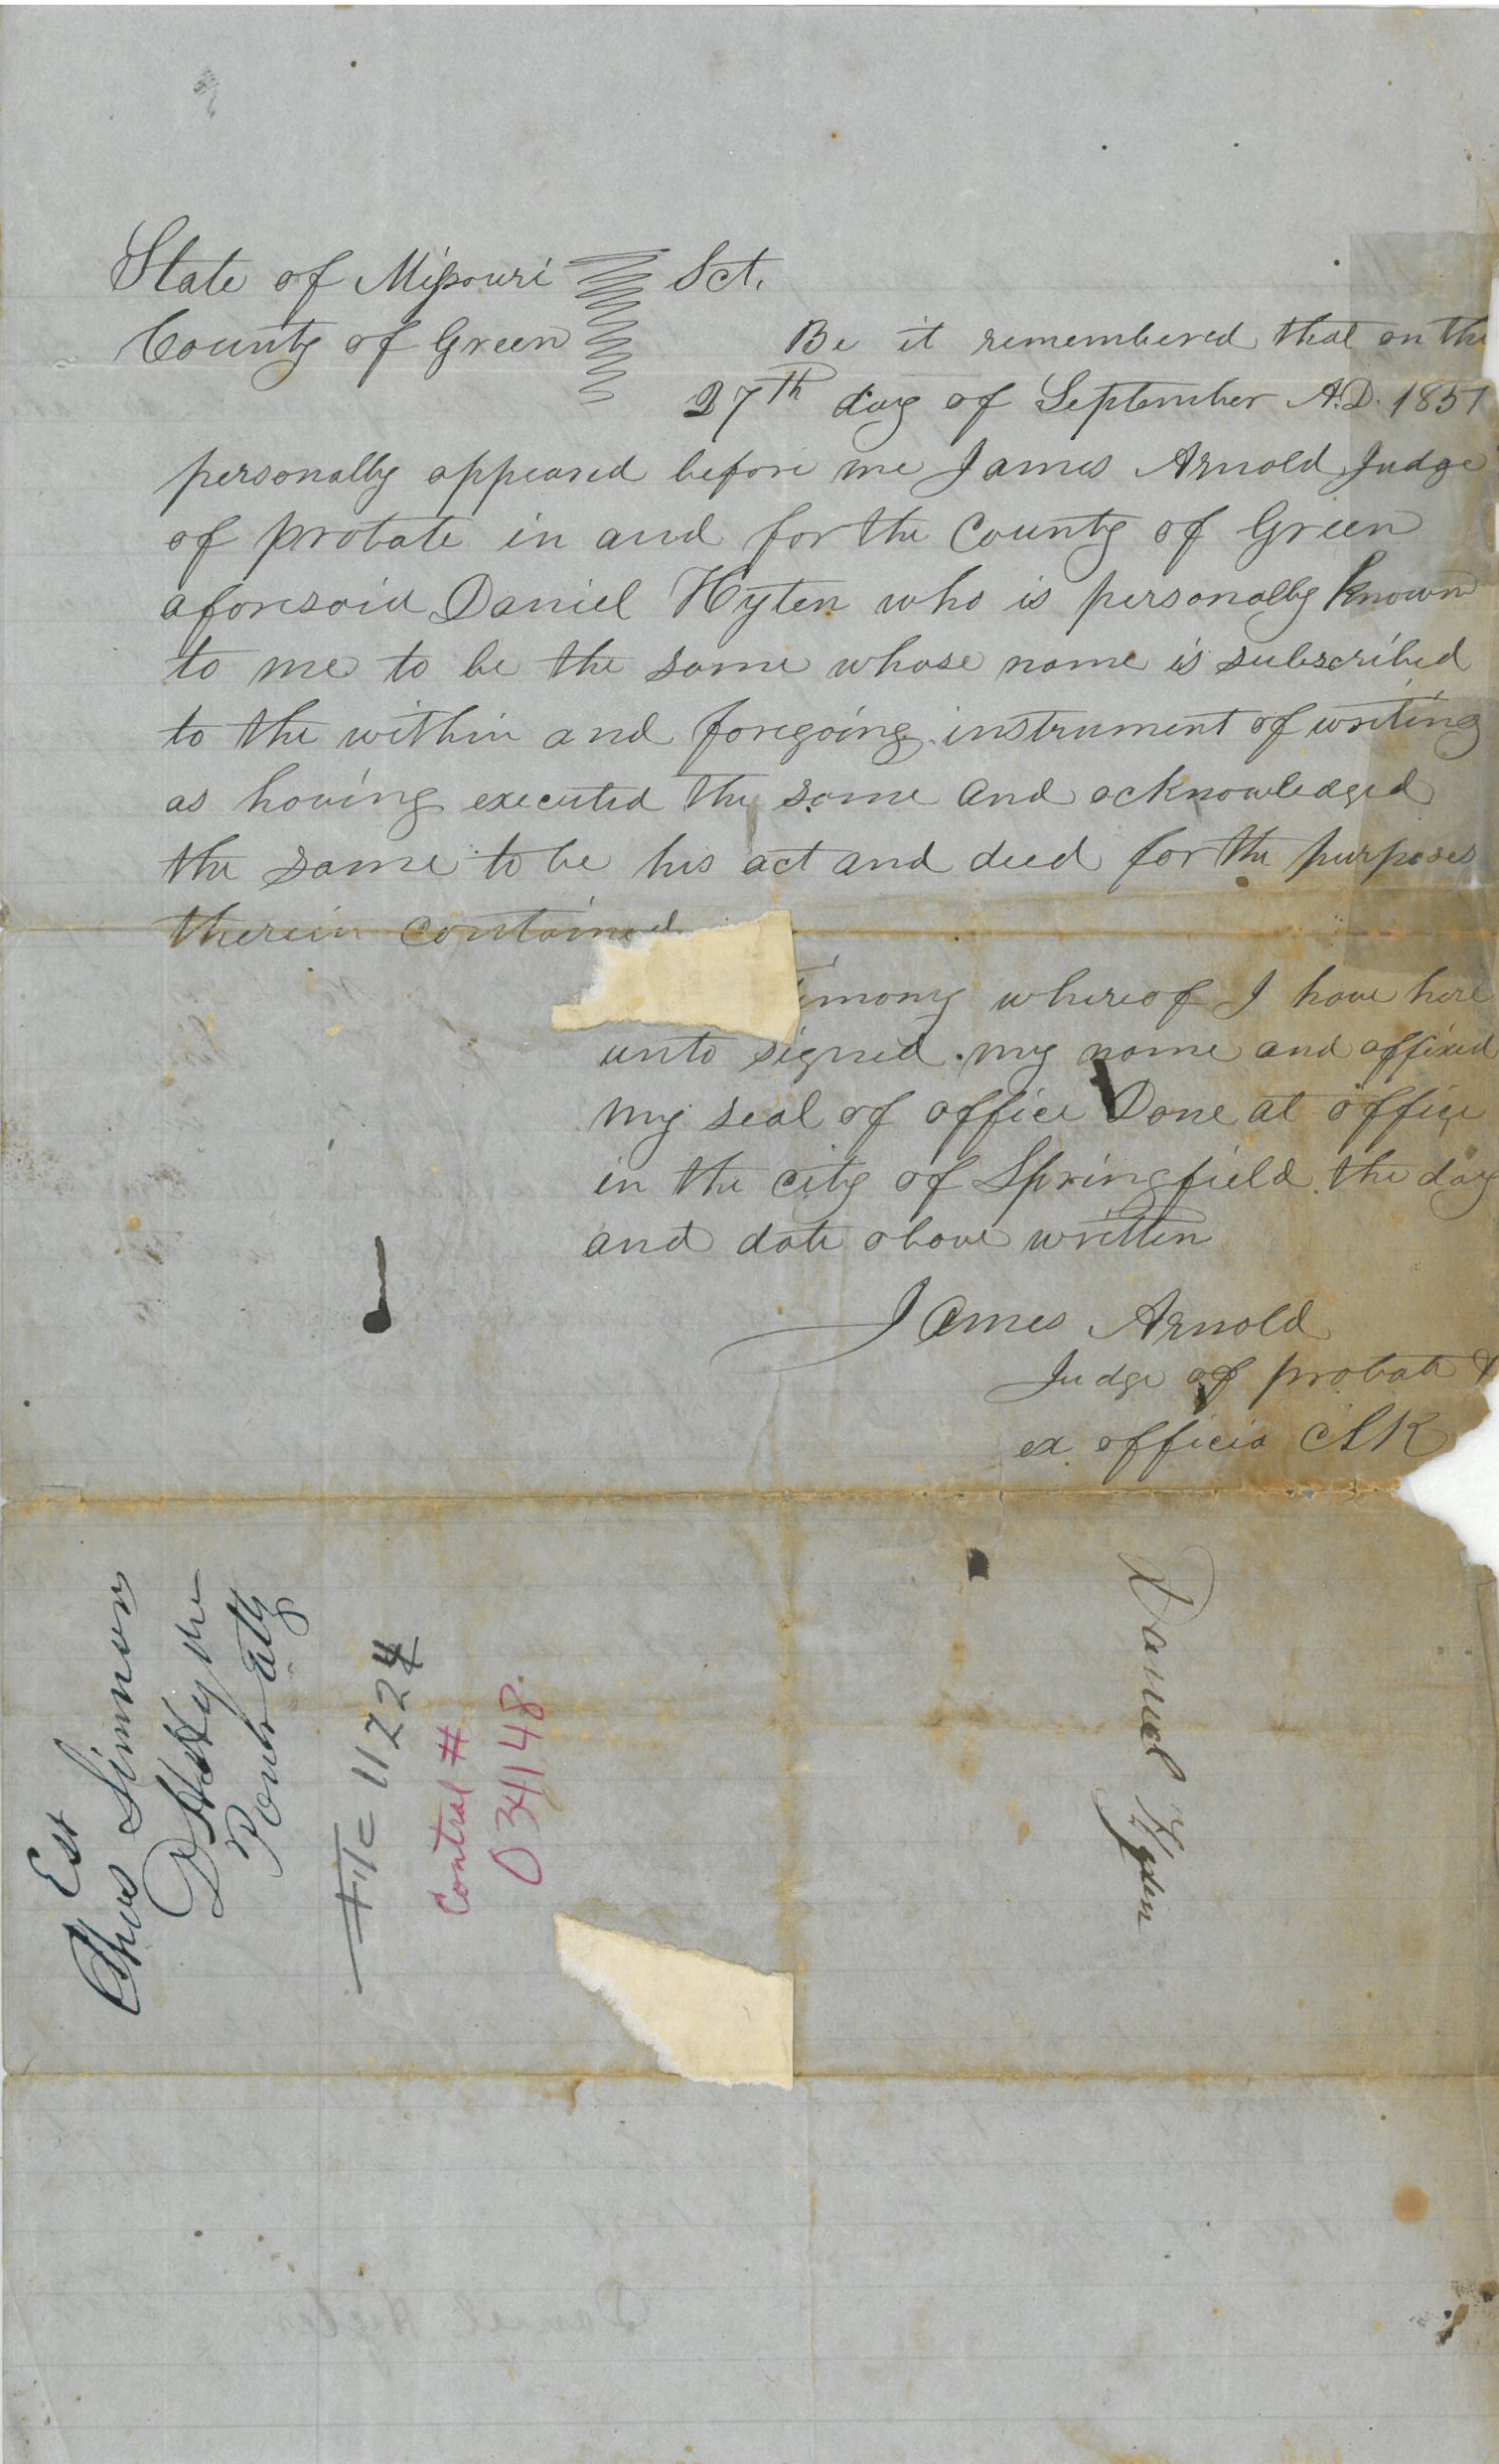 State of Missouri Sct.
County of Green Be it remembered that on the
27th day of September A.D. 1857
personally appeared before me James Arnold Judge
of probate in and for the County of Green
aforesaid Daniel Hyten who is personally known
to me to be the same whose name is subscribed
to the within and foregoing instrument of writing
as having executed the same and acknowledged
the same to be his act and deed for the purposes
therein contained
timony whereof I have here
unto signed my name and affixed
my seal of office Done at office
in the city of Springfield the day
and date above written
James Arnold
Judge of probate &
ex officio Clk
Est
Thos Simmons
Powr Atty
File 11224
Control #
034148
Daniel Hyden
Daniel Hyten